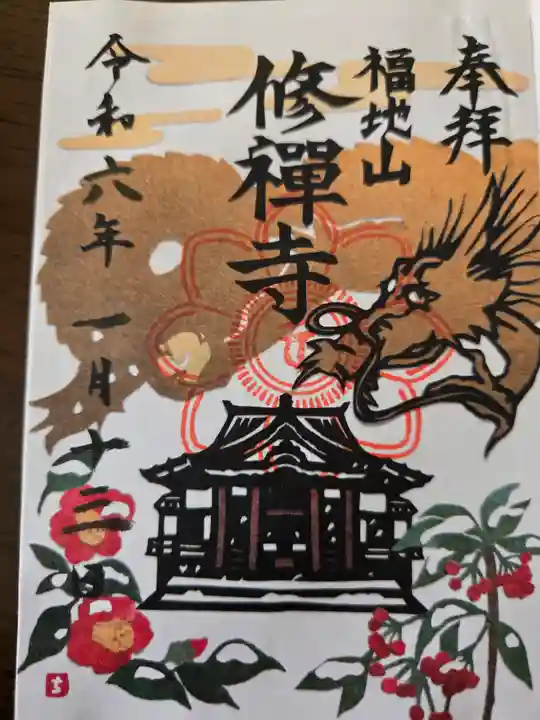 奉拝
福地山
修禅寺
令和六年一月十三日